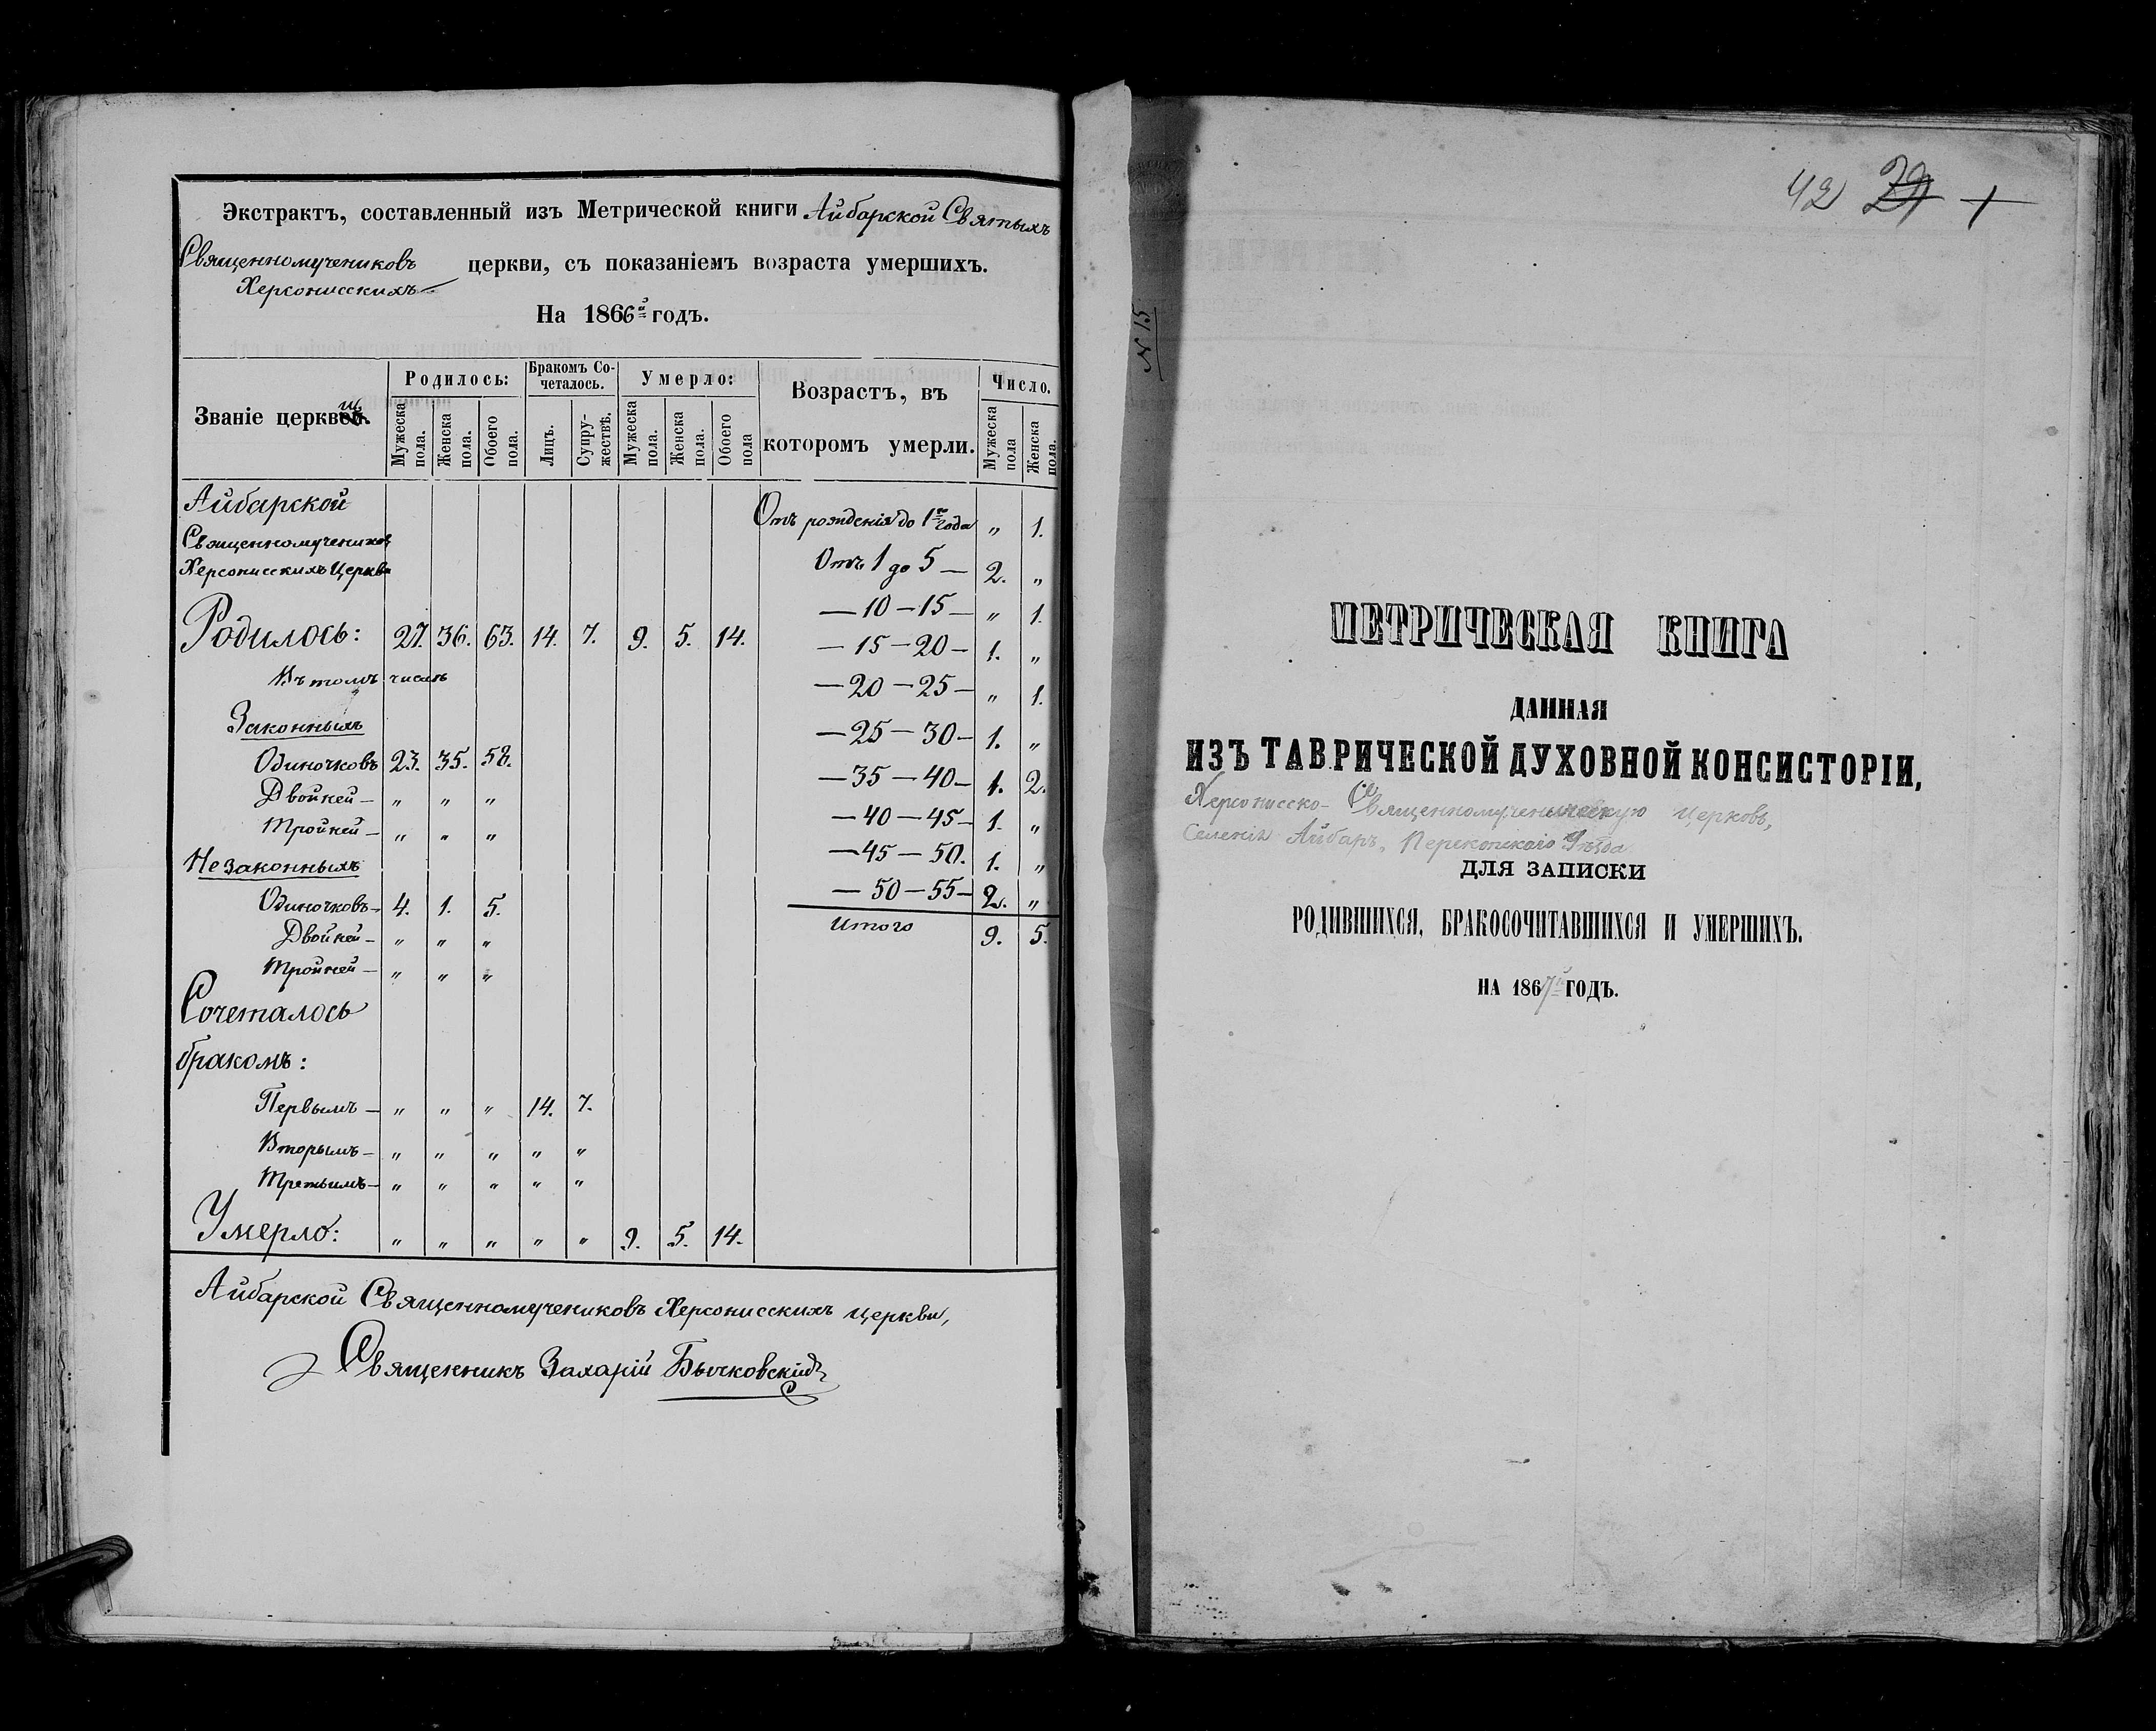 Экстрактъ, составленный изъ Метрической книги Айбарской Святыхъ
Священномучениковъ церкви, съ показаніемъ возраста умершихъ.
Херсонисскихъ
На 1866й годъ.
Званіе церкви. Родилось: Бракомъ Со- Умерло: Возрастъ, въ Число.
четалось.
Мужеска пола. Женска пола. Обоего пола. Лицъ. Супружествъ. Мужеска пола. Женска пола. Обоего пола которомъ умерли. Мужеска пола Женска пола.
Айбарской
Священномучениковъ
Херсонисскихъ Церкви
Родилось: 27. 36. 63. 14. 7. 9. 5. 14.
Въ томъ числѣ
Законныхъ
Одиночковъ 23. 35. 58.
Двойней — „ „ „
Тройней — „ „ „
Незаконныхъ
Одиночковъ — 4. 1. 5.
Двойней — „ „ „
Тройней — „ „ „
Сочеталось
бракомъ:
Первымъ — „ „ „ 14. 7.
Вторымъ — „ „ „ „ „
Третьимъ — „ „ „ „ „
Умерло: „ „ „ „ „ 9. 5. 14.
Отъ рожденія до 1го года „ 1.
Отъ 1 до 5 — 2. „
— 10 — 15 — „ 1.
— 15 — 20 — 1. „
— 20 — 25 — „ 1.
— 25 — 30 — 1. „
— 35 — 40 — 1. 2.
— 40 — 45 — 1. „
— 45 — 50. 1. „
— 50 — 55 — 2. „
Итого 9. 5.
Айбарской Священномучениковъ Херсонисскихъ церкви,
Священникъ Захарій Бычковскій
42 29 1
№ 15
МЕТРИЧЕСКАЯ КНИГА
ДАННАЯ
ИЗЪ ТАВРИЧЕСКОЙ ДУХОВНОЙ КОНСИСТОРІИ,
Херсонисско-Священномученическую церковь,
Селенія Айбаръ, Перекопскаго Уѣзда
ДЛЯ ЗАПИСКИ
РОДИВШИХСЯ, БРАКОСОЧИТАВШИХСЯ И УМЕРШИХЪ.
НА 1867й ГОДЪ.